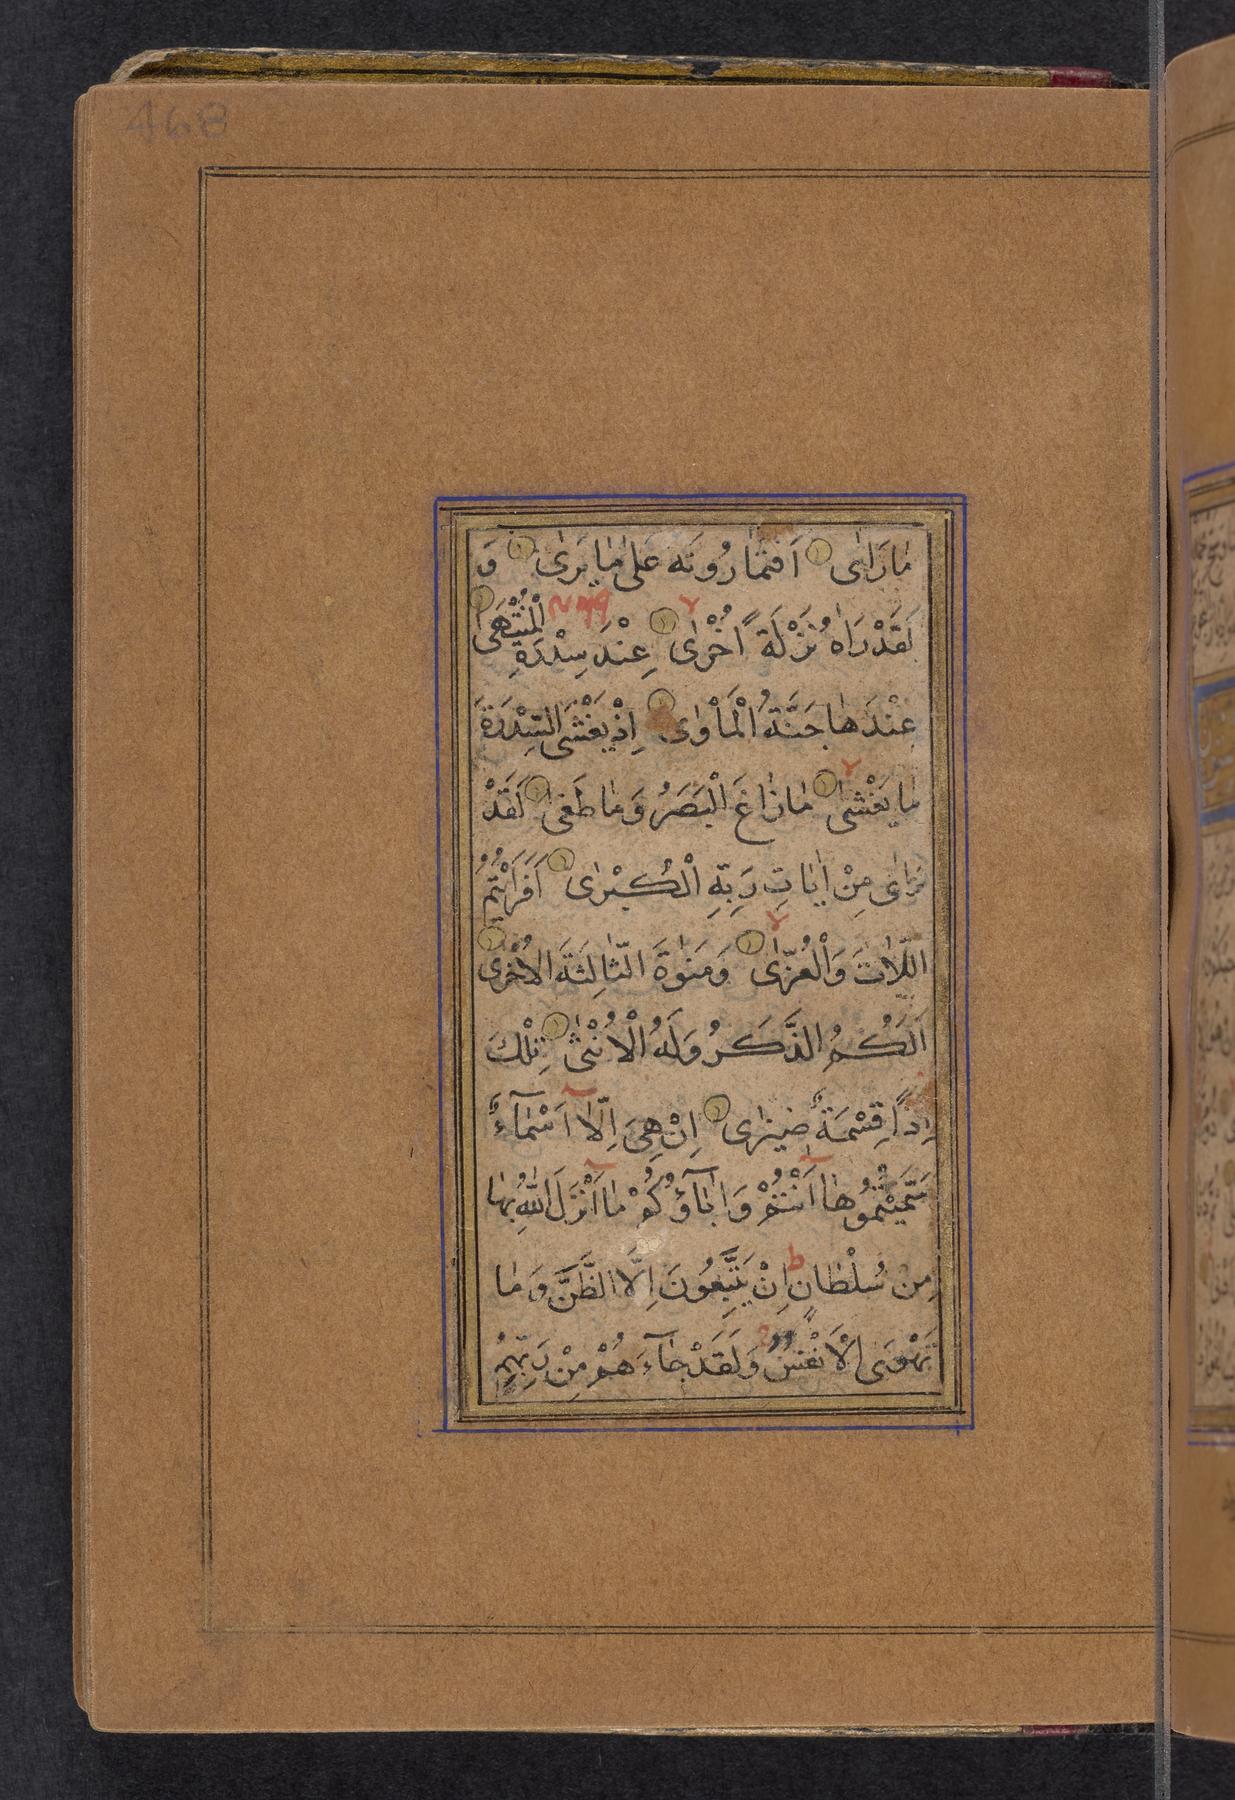 468
مٰا رَاٰى اَفَتُمٰارُونَه عَلىٰ مٰا يَرىٰ وَ
لَقَدْ رَاٰهُ نَزْلَةً اُخْرٰى عِنْدَ سِدْرَةِ الْمُنْتَهىٰ
عِنْدَهٰا جَنَّةُ الْمَأْوٰى اِذْ يَغْشَى السِّدْرَةَ
مٰا يَغْشىٰ مٰا زٰاغَ الْبَصَرُ وَ مٰا طَغىٰ لَقَدْ
رَاٰى مِنْ اٰيٰاتِ رَبِّهِ الْكُبْرٰى اَفَرَاَيْتُمُ
اللّٰاتَ وَالْعُزّٰى وَ مَنٰوةَ الثّٰالِثَةَ الْاُخْرٰى
اَلَكُمُ الذَّكَرُ وَلَهُ الْاُنْثىٰ تِلْكَ
اِذاً قِسْمَةٌ ضِيزٰى اِنْ هِيَ اِلّٰا اَسْمٰآءٌ
سَمَّيْتُمُوهٰا اَنْتُمْ وَ اٰبٰآؤُكُمْ مٰا اَنْزَلَ اللّٰهُ بِهٰا
مِنْ سُلْطٰانٍ ط اِنْ يَتَّبِعُونَ اِلَّا الظَّنَّ وَ مٰا
تَهْوَى الْاَنْفُسُ وَ لَقَدْ جٰآءَهُمْ مِنْ رَبِّهِمُ